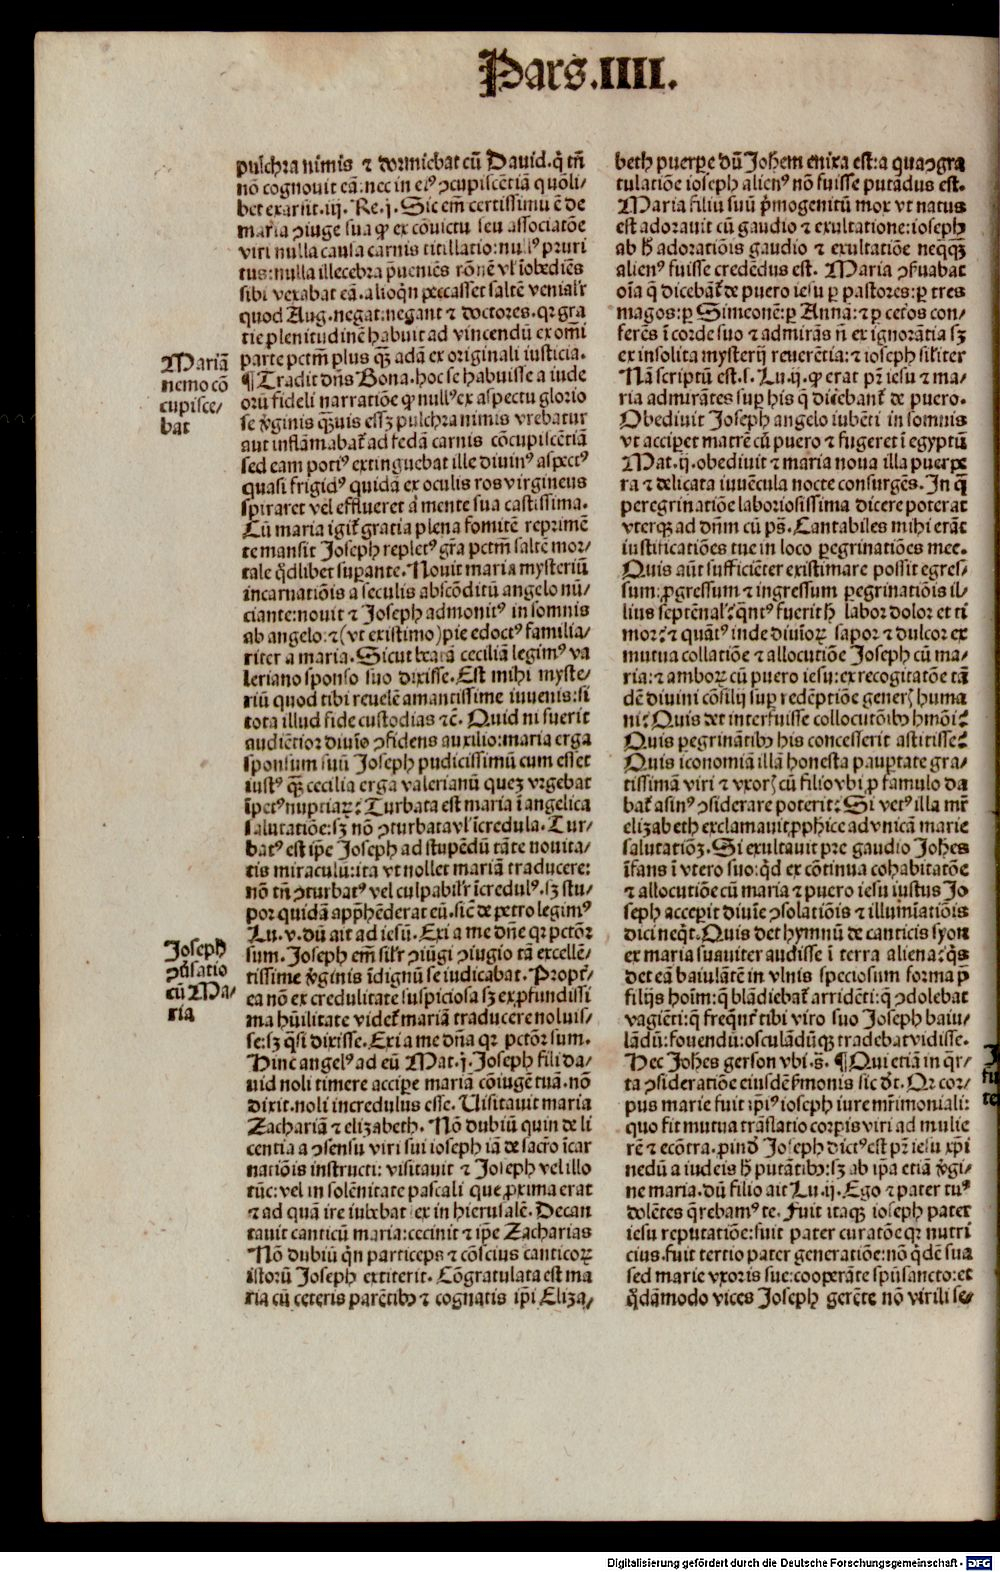 Pars.IIII.
pulchra nimis ⁊ dormiebat cū Dauid.q̄ tn̄
nō cognouit eā:nec in eiꝰ ꝯcupiscētiā quōli⸗
bet exarsit.iij. Re.j. Sic em̄ certissimū ē de
maria ꝯiuge sua ꝙ ex cōuictu seu associatōe
viri nulla causa carnis titillatio:nullꝰ pruri
tus:nulla illecebra p̄ueniēs rōnē vł īobediēs
sibi vexabat eā.alioq̄n peccasset saltē venialr
quod Aug.negat:negant ⁊ doctores.qr gra
tie plenitudinē habuit ad vincendū ex omī
parte pctm̄ plus qꝫ adā ex originali iusticia.
¶Tradit dn̄s Bona.hoc se habuisse a iude
orū fideli narratiōe ꝙ nullꝰ ex aspectu glorio
se v̄ginis qꝫuis essꝫ pulchra nimis vrebatur
aut inflāmabat̄ ad fedā carnis cōcupiscētiā
sed eam potiꝰ extinguebat ille diuinꝰ aspectꝰ
quasi frigidꝰ quidā ex oculis ros virgineus
spiraret vel efflueret a mente sua castissima.
Cū maria igit̄ gratia plena fomitē reprimē
te mansit Joseph repletꝰ gr̄a pctm̄ saltē mor⸗
tale q̄dlibet suꝑante. Nouit maria mysteriū
īncarnatiōis a seculis abscōditū angelo nū⸗
ciante:nouit ⁊ Joseph admonitꝰ in somnis
ab angelo:⁊(vt existimo)pie edoctꝰ familia⸗
riter a maria. Sicut beatā ceciliā legimꝰ va
leriano sponso suo dixisse. Est mihi myste⸗
riū quod tibi reuelē amantissime iuuenis:si
tota illud fide custodias ⁊c̄. Quid ni fuerit
audiētior diuīo ꝯfidens auxilio:maria erga
sponsum suū Joseph pudicissimū cum esset
iustꝰ qꝫ cecilia erga valerianū quez vrgebat
īpetꝰ nuptiaꝝ? Turbata est maria ī angelica
salutatiōe:sꝫ nō ꝯturbata vł īcredula. Tur⸗
batꝰ est ip̄e Joseph ad stupēdū tāte nouita⸗
tis miraculū:ita vt nollet mariā traducere:
nō tn̄ ꝯturbatꝰ vel culpabilr īcredulꝰ.sꝫ stu⸗
por quidā app̄hēderat eū.sic̄ de petro legimꝰ
Lu.v.dū ait ad iesū. Exi a me dn̄e qr pctōr
sum. Joseph em̄ silr ꝯiūgi ꝯiugio tā excellē⸗
tissime v̄ginis īdignū se iudicabat. Propt̄⸗
ea nō ex credulitate suspiciosa sꝫ ex ꝓfundissi
ma hūilitate videt̄ mariā traducere noluis⸗
se:sꝫ q̄si dixisse. Exi a me dn̄a qr pctōr sum.
Hinc angelꝰ ad eū Mat.j. Joseph fili da⸗
uid noli timere acciꝑe mariā cōiugē tuā. nō
dixit.noli incredulus esse. Uisitauit maria
Zachariā ⁊ elizabeth. Nō dubiū quin de li
centia a ꝯsensu viri sui ioseph iā de sacro īcar
natiōis instructi: visitauit ⁊ Joseph vel illo
tūc:vel in solēnitate pascali que ꝓxima erat
⁊ ad quā ire iubebat̄ ex in hierusalē. Decan
tauit canticū maria:cecinit ⁊ ip̄e Zacharias
Nō dubiū q̄n particeps ⁊ cōscius canticoꝝ
istorū Joseph extiterit. Cōgratulata est ma
ria cū ceteris parētibꝫ ⁊ cognatis ip̄i Eliza⸗
Mariā
nemo cō
cupisce⸗
bat
Joseph
ꝯūsatio
cū Ma⸗
ria
beth puerꝑe dū Johem enixa est:a qua ꝯgra
tulatiōe ioseph alienꝰ nō fuisse putādus est.
Maria filiū suū p̄mogenitū mox vt natus
est adorauit cū gaudio ⁊ exultatione:ioseph
ab h̄ adoratiōis gaudio ⁊ exultatiōe neqꝫꝗ
alienꝰ fuisse credēdus est. Maria ꝯẜuabat
oīa q̄ dicebāt̄ de puero iesu ꝑ pastores:ꝑ tres
magos:ꝑ Simeonē:ꝑ Annā:⁊ ꝑ cet̄os con⸗
ferēs ī corde suo ⁊ admirās n̄ ex ignorātia sꝫ
ex insolita mysterij reuerētia:⁊ ioseph silr̄iter
Nā scriptū est.s. Lu.ij.ꝙ erat pr̄ iesu ⁊ ma⸗
ria admirātes suꝑ his q̄ dicebant̄ de puero.
Obediuit Joseph angelo iubēti in somnis
vt acciꝑet matrē cū puero ⁊ fugeret ī egyptū
Mat.ij.obediuit ⁊ maria noua illa puerꝑe
ra ⁊ delicata iuuēcula nocte consurgēs. In q̄
peregrinatiōe laboriosissima dicere poterat
vterqꝫ ad dn̄m cū ps̄. Cantabiles mihi erāt
iustificatiōes tue in loco ꝑegrinatiōes mee.
Quis aūt sufficiēter existimare possit egres⸗
sum:ꝓgressum ⁊ ingressum ꝑegrinatiōis il⸗
lius septēnal?q̄ntꝰ fuerit h̄ labor dolor et ti
mor?⁊ quātꝰ inde diuīoꝝ sapor ⁊ dulcor ex
mutua collatiōe ⁊ allocutiōe Joseph cū ma⸗
ria:⁊ amboꝝ cū puero iesu:ex recogitatōe tā
dē diuini cōsilij suꝑ redēptiōe generꝭ huma
ni? Quis det interfuisse collocutōibꝫ hmōi?
Quis ꝑegrinātibꝫ his concesserit astitisse?
Quis iconomiā illā honesta pauꝑtate gra⸗
tissimā viri ⁊ vxorꝭ cū filio vbi ꝓ famulo da
bat̄ asinꝰ ꝯsiderare poterit? Si vetꝰ illa mr̄
elizabeth exclamauit ꝓph̄ice ad vnicā marie
salutatiōꝫ. Si exultauit pre gaudio Johēs
īfans ī vtero suo:q̄d ex cōtinua cohabitatōe
⁊ allocutiōe cū maria ⁊ puero iesu iustus Jo
seph accepit diuīe ꝯsolatiōis ⁊ illumīatiōis
dici neq̄t. Quis det hymnū de canticis syon
ex maria suauiter audisse ī terra aliena?q̄s
det eā baiulātē in vlnis speciosum forma p̄
filijs hoīm:q̄ blādiebat̄ arridēti:q̄ ꝯdolebat
vagiēti:q̄ freq̄nt̄ tibi viro suo Joseph baiu⸗
lādū:fouendū:osculādūqꝫ tradebat vidisse.
Hec Johēs gerson vbi.s̄. ¶Qui etiā in q̄r⸗
ta ꝯsideratiōe eiusdē ẜmonis sic d̄t. Qr cor⸗
pus marie fuit ip̄iꝰ ioseph iure mr̄imoniali:
quo fit mutua trāslatio corꝑis viri ad mulie
rē ⁊ ecōtra.ꝓind̄ Joseph dictꝰ est pr̄ iesu xp̄i
nedū a iudeis h̄ putātibꝫ:sꝫ ab ip̄a etiā v̄gi⸗
ne maria.dū filio ait Lu.ij. Ego ⁊ pater tuꝰ
dolētes q̄rebamꝰ te. Fuit itaqꝫ ioseph pater
iesu reputatiōe:fuit pater curatōe qr nutri
cius.fuit tertio pater generatiōe:nō q̄dē sua
sed marie vxoris sue:cooperāte spūsancto:et
q̄dāmodo vices Joseph gerēte nō virili se⸗
Digitalisierung gefördert durch die Deutsche Forschungsgemeinschaft - DFG